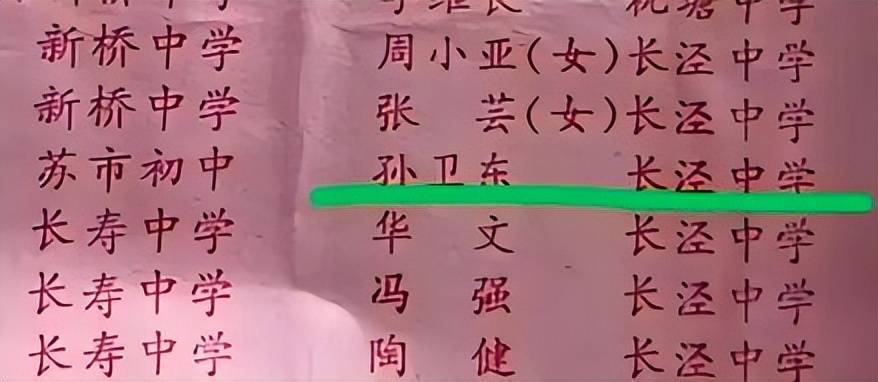 新桥中学 周小亚(女)长泾中学
新桥中学 张 芸(女)长泾中学
苏市初中 孙卫东 长泾中学
长寿中学 华 文 长泾中学
长寿中学 冯 强 长泾中学
长寿中学 陶 健 长泾中学